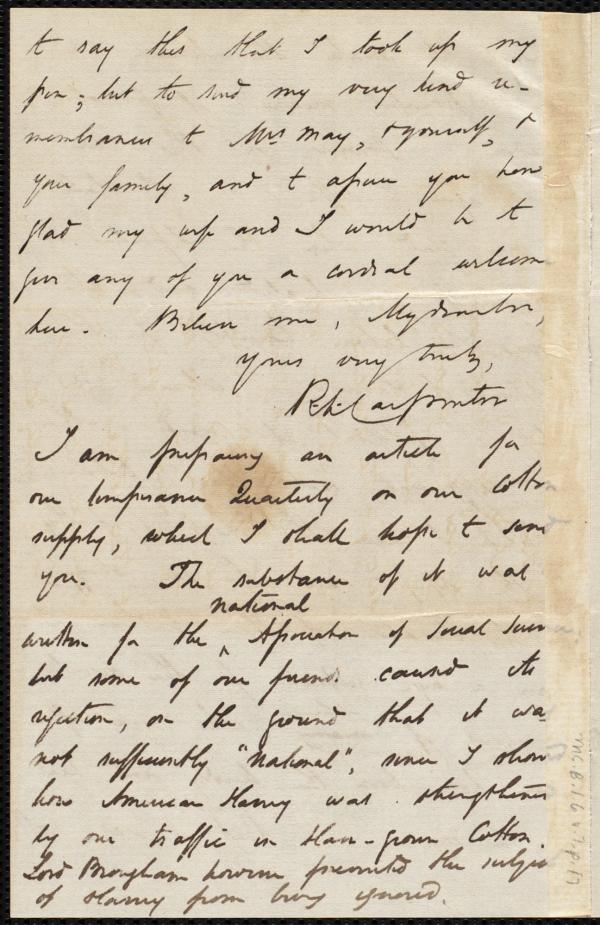 to say this that I took up my
pen; but to send my very kind re-
membrances to Mrs May, & yourself, &
your family, and to assure you how
glad my wife and I would be to
give any of you a cordial welcome
here. Believe me, My dear Sir,
yours very truly,
R. L. Carpenter
I am preparing an article for
our temperance Quarterly on our Cotton
supply, which I shall hope to send
you. The substance of it was
national
written for the ‸ Association of Social Science
but some of our friends caused its
rejection, on the ground that it was
not sufficiently "National", since I show
how American Slavery was strengthened
by our traffic in slave-grown Cotton.
Lord Brougham however prevented the subject
of slavery from being ignored.